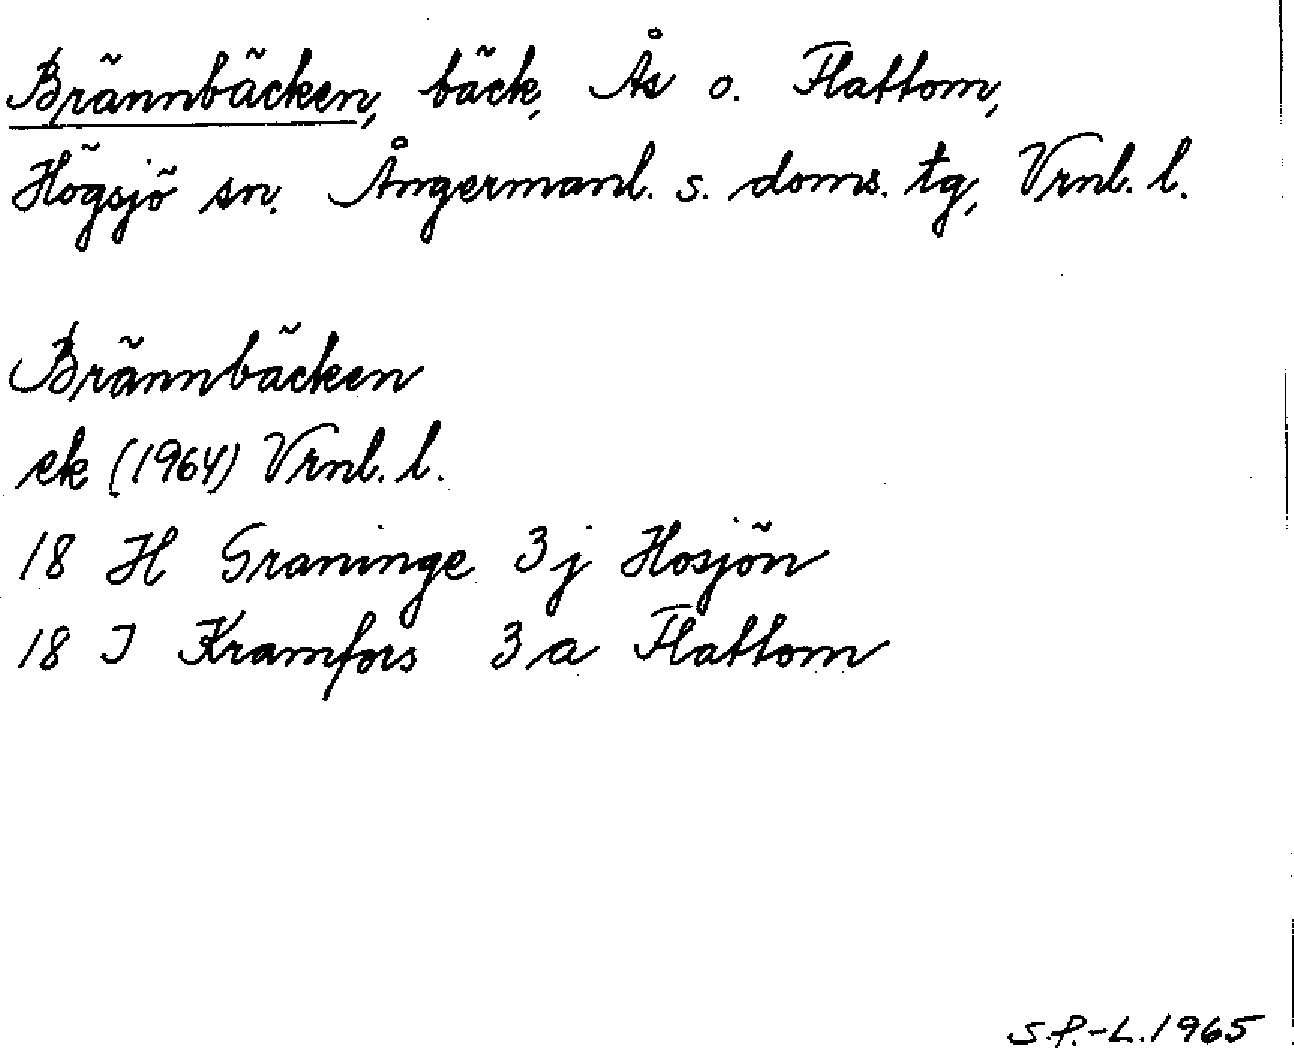 Brännbäcken, bäck, Ås o. Flattom,
Högsjö sn. Ångermanl. s. doms. tg, Vrnl. l.
Brännbäcken
ek (1964) Vrnl. l.
18 H Graninge 3j Hosjön
18 I Kramfors 3a Flattom
S.P.-L. 1965